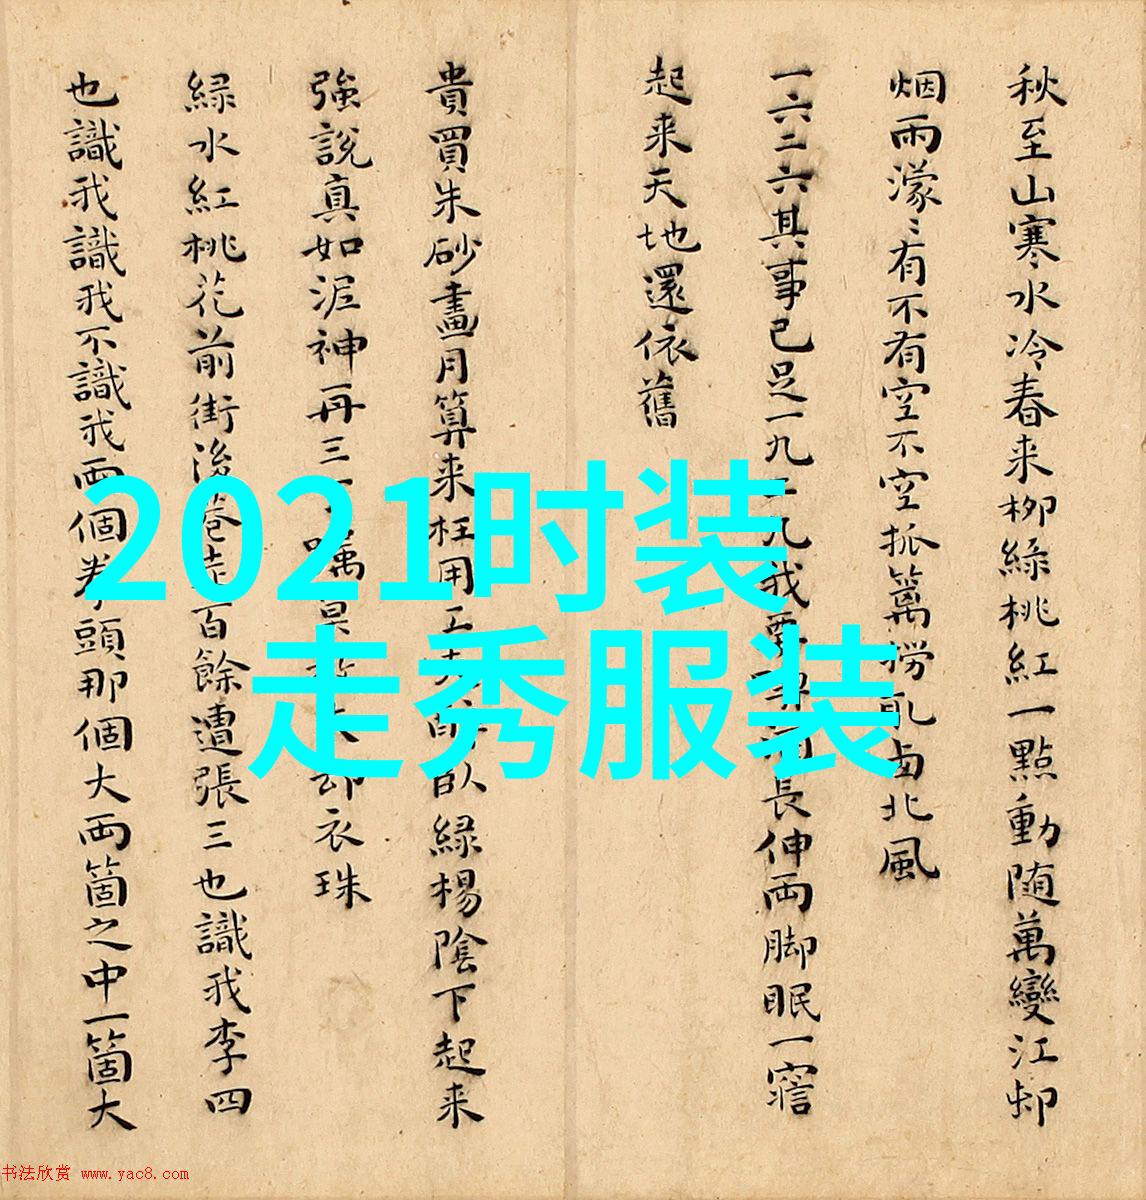 秋至山寒水冷春来柳緑桃紅一點動随萬變江邨
烟雨濛〻有不有空不空笊篱撈乳卣北風
一六二六其事已足一九二九我要長伸両脚眠一寤
起来天地還依舊
貴買朱砂畫月算来枉用工夫醉臥緑楊陰下起来
強說真如泥神再三一嘱莫衣珠
緑水紅桃花前街後巷走百餘遭張三也識我李四
也識我識我不識我両個拳頭那個大両箇之中一箇大
2021时装
走秀服装
书法欣赏 www.yac8.com